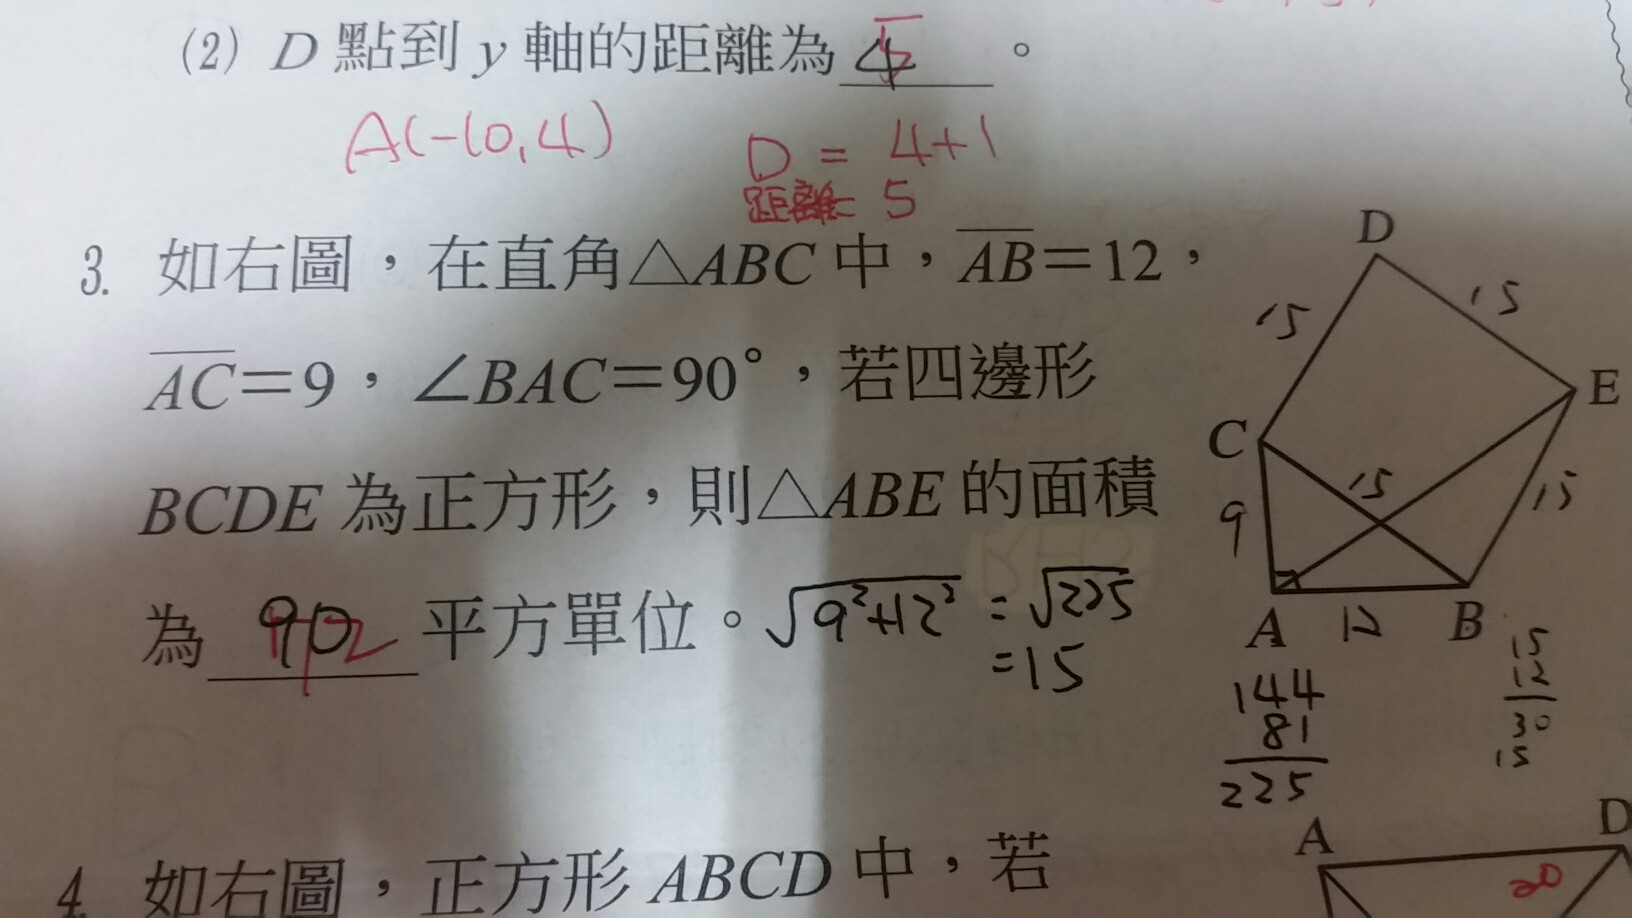 (2) D 點到 y 軸的距離為 4 5 。
A(-10,4)
D = 4+1
距離= 5
3. 如右圖，在直角△ABC 中，AB=12，
AC=9，∠BAC=90°，若四邊形
BCDE 為正方形，則△ABE 的面積
為 90 72 平方單位。√9²+12² = √225
=15
D
15
15
E
C
15
15
9
A 12 B
144
81
225
15
12
30
15
4. 如右圖，正方形 ABCD 中，若
A
D
20